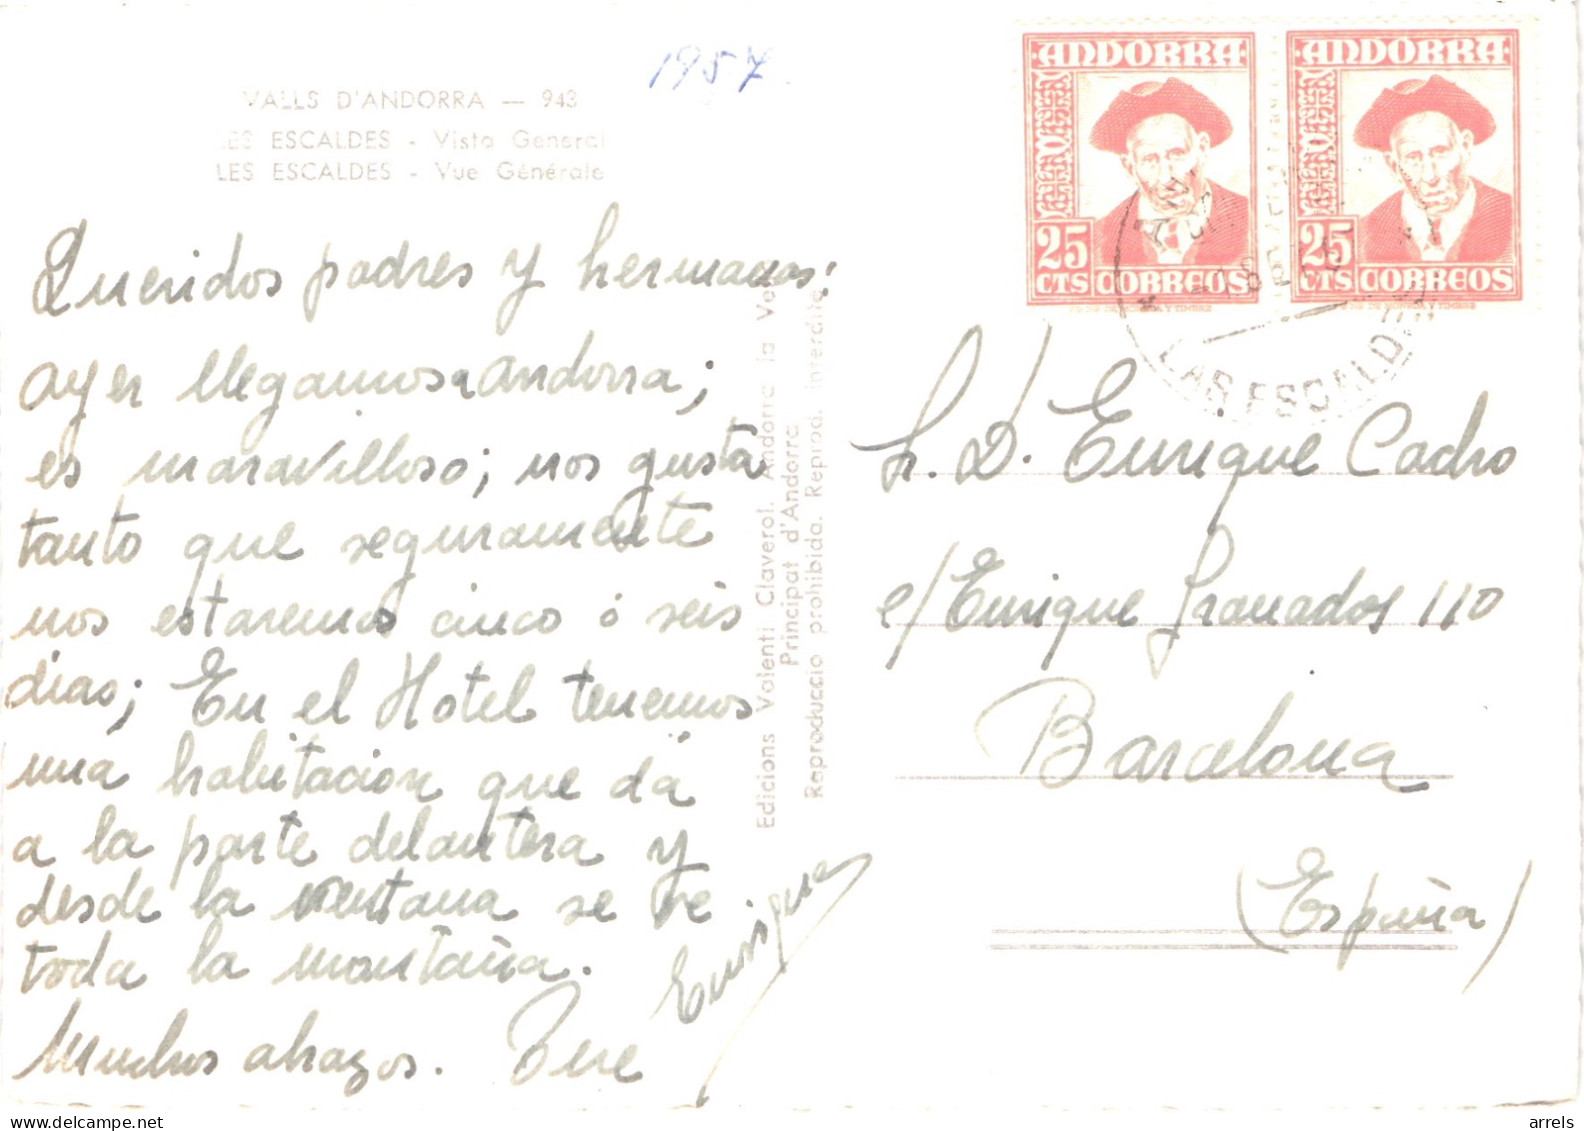 1957
VALLS D'ANDORRA — 943
LES ESCALDES - Vista General
LES ESCALDES - Vue Générale
Queridos padres y hermanas:
ayer llegamos a andorra;
es maravilloso; nos gusta
tanto que seguramente
nos estaremos cinco ó seis
dias; En el Hotel tenemos
una habitación que dá
a la parte delantera y
desde la ventana se ve
toda la montaña.
Muchos abrazos.
Enrique
Edicions Valenti Claverol. Andorra la Ve
Principat d'Andorra
Reproduccio prohibida. Reprod. interdite
ANDORRA
25
CTS CORREOS
ANDORRA
25
CTS CORREOS
LAS ESCALD
Sr. D. Enrique Cadro
c/ Enrique Granados 110
Barcelona
(España)
arrels